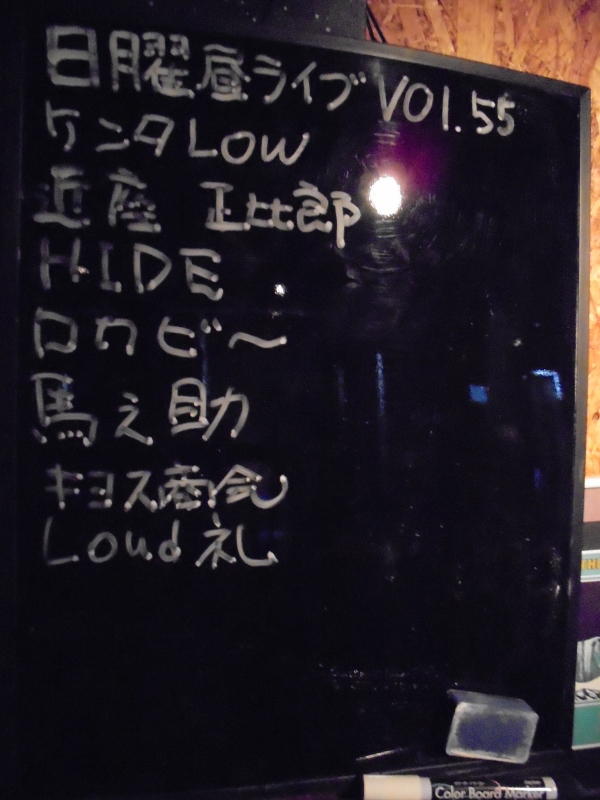 日曜昼ライブ VOl.55
ケンタLOW
近座 正比郎
HIDE
ロカビ〜
馬之助
キヨス商会
Loud 礼
Color Board Marker